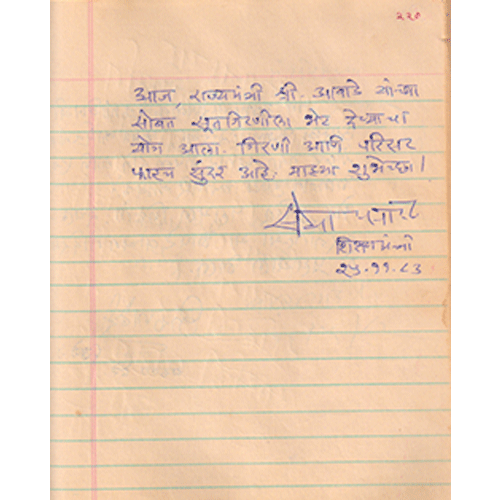 २२०
आज, राज्यमंत्री श्री. आवाडे यांच्या
सोबत सूतगिरणीला भेट देण्याचा
योग आला. गिरणी आणि परिसर
फारच सुंदर आहे. माझ्या शुभेच्छा!
शिक्षणमंत्री
२५.११.८३